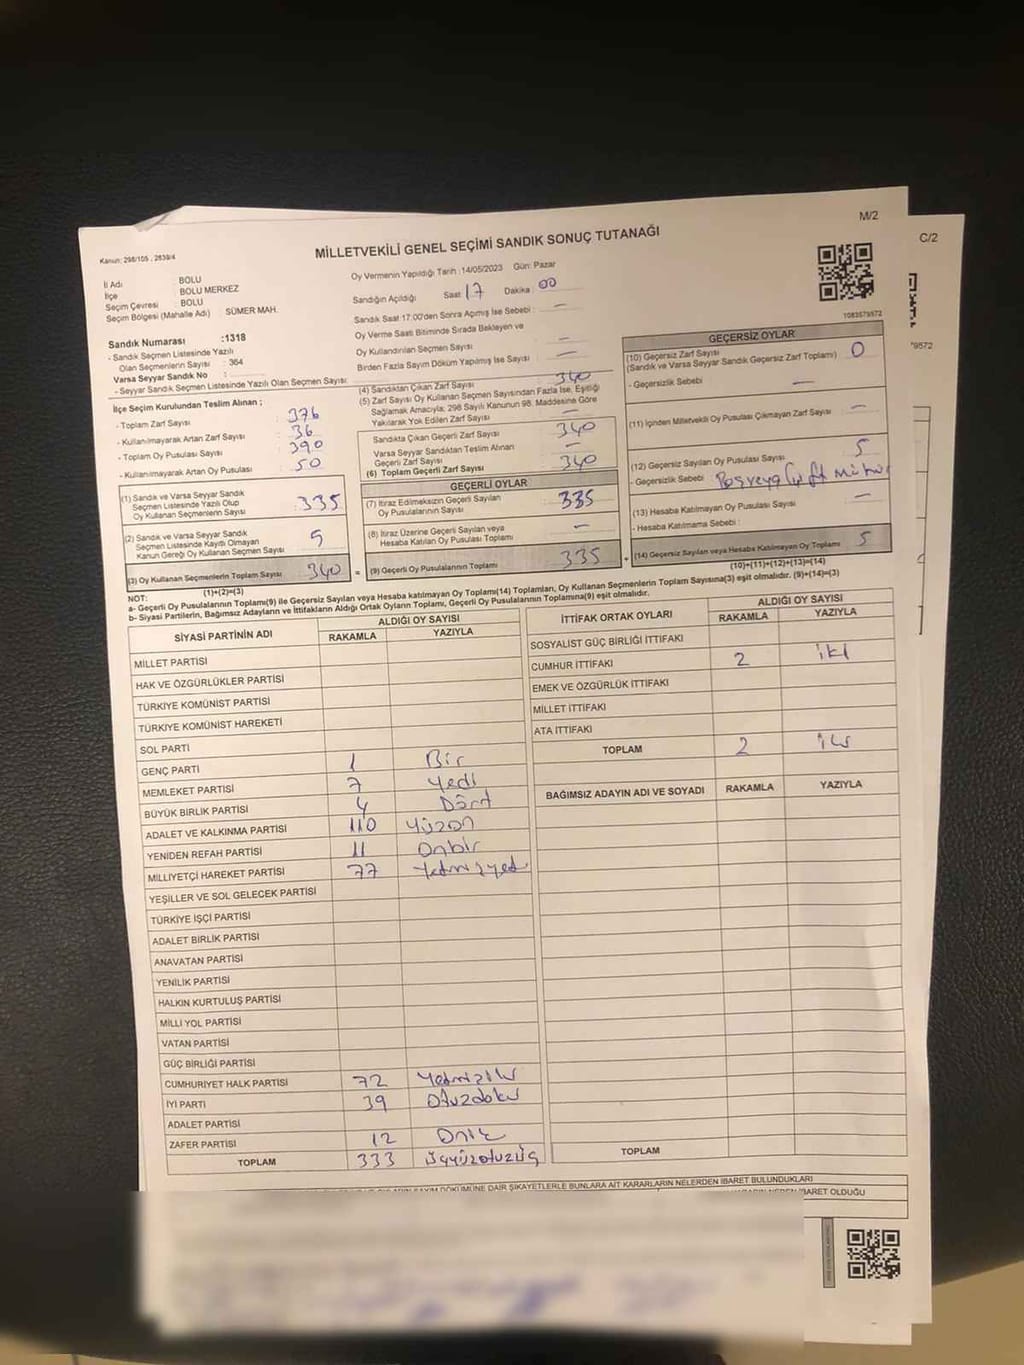 M/2
C/2
Kanun: 298/105 , 2839/4
MİLLETVEKİLİ GENEL SEÇİMİ SANDIK SONUÇ TUTANAĞI
İl Adı : BOLU
İlçe : BOLU MERKEZ
Seçim Çevresi : BOLU
Seçim Bölgesi (Mahalle Adı) : SÜMER MAH.
Sandık Numarası :1318
- Sandık Seçmen Listesinde Yazılı
Olan Seçmenlerin Sayısı : 364
Varsa Seyyar Sandık No :
- Seyyar Sandık Seçmen Listesinde Yazılı Olan Seçmen Sayısı:
Oy Vermenin Yapıldığı Tarih :14/05/2023 Gün: Pazar
Sandığın Açıldığı Saat 17 Dakika : 00
Sandık Saat 17:00'den Sonra Açılmış İse Sebebi : —
Oy Verme Saati Bitiminde Sırada Bekleyen ve
Oy Kullandırılan Seçmen Sayısı : —
Birden Fazla Sayım Döküm Yapılmış İse Sayısı : —
1083579572
9572
İlçe Seçim Kurulundan Teslim Alınan ;
- Toplam Zarf Sayısı : 376
- Kullanılmayarak Artan Zarf Sayısı : 36
- Toplam Oy Pusulası Sayısı : 390
- Kullanılmayarak Artan Oy Pusulası : 50
(1) Sandık ve Varsa Seyyar Sandık
Seçmen Listesinde Yazılı Olup
Oy Kullanan Seçmenlerin Sayısı : 335
(2) Sandık ve Varsa Seyyar Sandık
Seçmen Listesinde Kayıtlı Olmayan
Kanun Gereği Oy Kullanan Seçmen Sayısı : 5
(3) Oy Kullanan Seçmenlerin Toplam Sayısı 340
(1)+(2)=(3)
(4) Sandıktan Çıkan Zarf Sayısı : 340
(5) Zarf Sayısı Oy Kullanan Seçmen Sayısından Fazla İse, Eşitliği
Sağlamak Amacıyla; 298 Sayılı Kanunun 98. Maddesine Göre
Yakılarak Yok Edilen Zarf Sayısı : —
Sandıkta Çıkan Geçerli Zarf Sayısı : 340
Varsa Seyyar Sandıktan Teslim Alınan
Geçerli Zarf Sayısı : —
(6) Toplam Geçerli Zarf Sayısı : 340
GEÇERLİ OYLAR
(7) İtiraz Edilmeksizin Geçerli Sayılan
Oy Pusulalarının Sayısı : 335
(8) İtiraz Üzerine Geçerli Sayılan veya
Hesaba Katılan Oy Pusulası Toplamı : —
= (9) Geçerli Oy Pusulalarının Toplamı : 335 +
GEÇERSİZ OYLAR
(10) Geçersiz Zarf Sayısı
(Sandık ve Varsa Seyyar Sandık Geçersiz Zarf Toplamı) : 0
- Geçersizlik Sebebi : —
(11) İçinden Milletvekili Oy Pusulası Çıkmayan Zarf Sayısı : —
(12) Geçersiz Sayılan Oy Pusulası Sayısı : 5
- Geçersizlik Sebebi : Boş veya Çift mühür
(13) Hesaba Katılmayan Oy Pusulası Sayısı : —
- Hesaba Katılmama Sebebi :
(14) Geçersiz Sayılan veya Hesaba Katılmayan Oy Toplamı : 5
(10)+(11)+(12)+(13)=(14)
NOT:
a- Geçerli Oy Pusulalarının Toplamı(9) ile Geçersiz Sayılan veya Hesaba katılmayan Oy Toplamı(14) Toplamları, Oy Kullanan Seçmenlerin Toplam Sayısına(3) eşit olmalıdır. (9)+(14)=(3)
b- Siyasi Partilerin, Bağımsız Adayların ve İttifakların Aldığı Ortak Oyların Toplamı, Geçerli Oy Pusulalarının Toplamına(9) eşit olmalıdır.
SİYASİ PARTİNİN ADI ALDIĞI OY SAYISI
RAKAMLA YAZIYLA
MİLLET PARTİSİ
HAK VE ÖZGÜRLÜKLER PARTİSİ
TÜRKİYE KOMÜNİST PARTİSİ
TÜRKİYE KOMÜNİST HAREKETİ
SOL PARTİ
GENÇ PARTİ 1 Bir
MEMLEKET PARTİSİ 7 Yedi
BÜYÜK BİRLİK PARTİSİ 4 Dört
ADALET VE KALKINMA PARTİSİ 110 Yüzon
YENİDEN REFAH PARTİSİ 11 Onbir
MİLLİYETÇİ HAREKET PARTİSİ 77 Yetmişyedi
YEŞİLLER VE SOL GELECEK PARTİSİ
TÜRKİYE İŞÇİ PARTİSİ
ADALET BİRLİK PARTİSİ
ANAVATAN PARTİSİ
YENİLİK PARTİSİ
HALKIN KURTULUŞ PARTİSİ
MİLLİ YOL PARTİSİ
VATAN PARTİSİ
GÜÇ BİRLİĞİ PARTİSİ
CUMHURİYET HALK PARTİSİ 72 Yetmişiki
İYİ PARTİ 39 Otuzdokuz
ADALET PARTİSİ
ZAFER PARTİSİ 12 Oniki
TOPLAM 333 üçyüzotuzüç
İTTİFAK ORTAK OYLARI ALDIĞI OY SAYISI
RAKAMLA YAZIYLA
SOSYALİST GÜÇ BİRLİĞİ İTTİFAKI
CUMHUR İTTİFAKI 2 iki
EMEK VE ÖZGÜRLÜK İTTİFAKI
MİLLET İTTİFAKI
ATA İTTİFAKI
TOPLAM 2 iki
BAĞIMSIZ ADAYIN ADI VE SOYADI RAKAMLA YAZIYLA
TOPLAM
SAYIM DÖKÜMÜNE DAİR ŞİKAYETLERLE BUNLARA AİT KARARLARIN NELERDEN İBARET BULUNDUKLARI
İBARET OLDUĞU